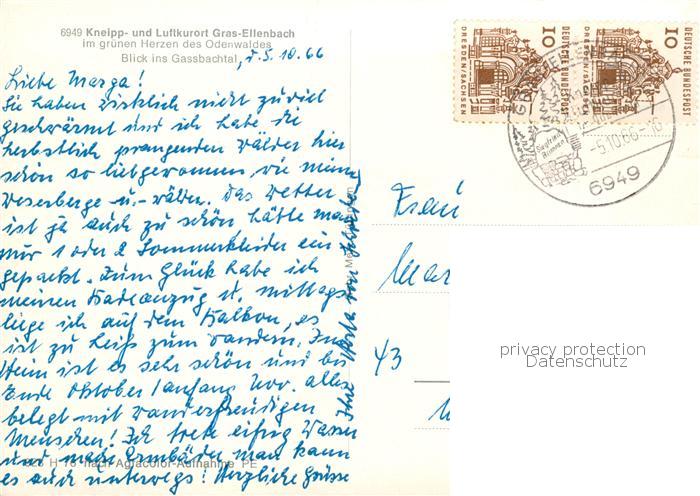 6949 Kneipp- und Luftkurort Gras-Ellenbach
im grünen Herzen des Odenwaldes
Blick ins Gassbachtal, d. 5.10.66
Liebe Marga!
Sie haben wirklich nicht zuviel
geschwärmt und ich habe die
herbstlich prangenden Wälder hier
schön so liebgewonnen, wie meine
Weserberge u.-wälder. Das Wetter
ist ja auch zu schön hätte man
nur 1 oder 2 Sommerkleider ein
gepackt. Zum Glück habe ich
meinen Badeanzug u. mittags
liege ich auf dem Balkon, es
ist zu heiß zum wandern. Im
Heim ist es sehr schön und bis
Ende Oktober/anfang Nov. alles
belegt mit wanderfreudigen
Menschen! Ich trete eifrig Wasser
und mache Armbäder man kann
es auch unterwegs! Herzliche Grüsse
Ihre
nach Agfacolor-Aufnahme PE
10
DEUTSCHE BUNDESPOST
DRESDEN/SACHSEN
10
DEUTSCHE BUNDESPOST
DRESDEN/SACHSEN
-5.10.66-16
6949
Frau
Mar
43
privacy protection
Datenschutz